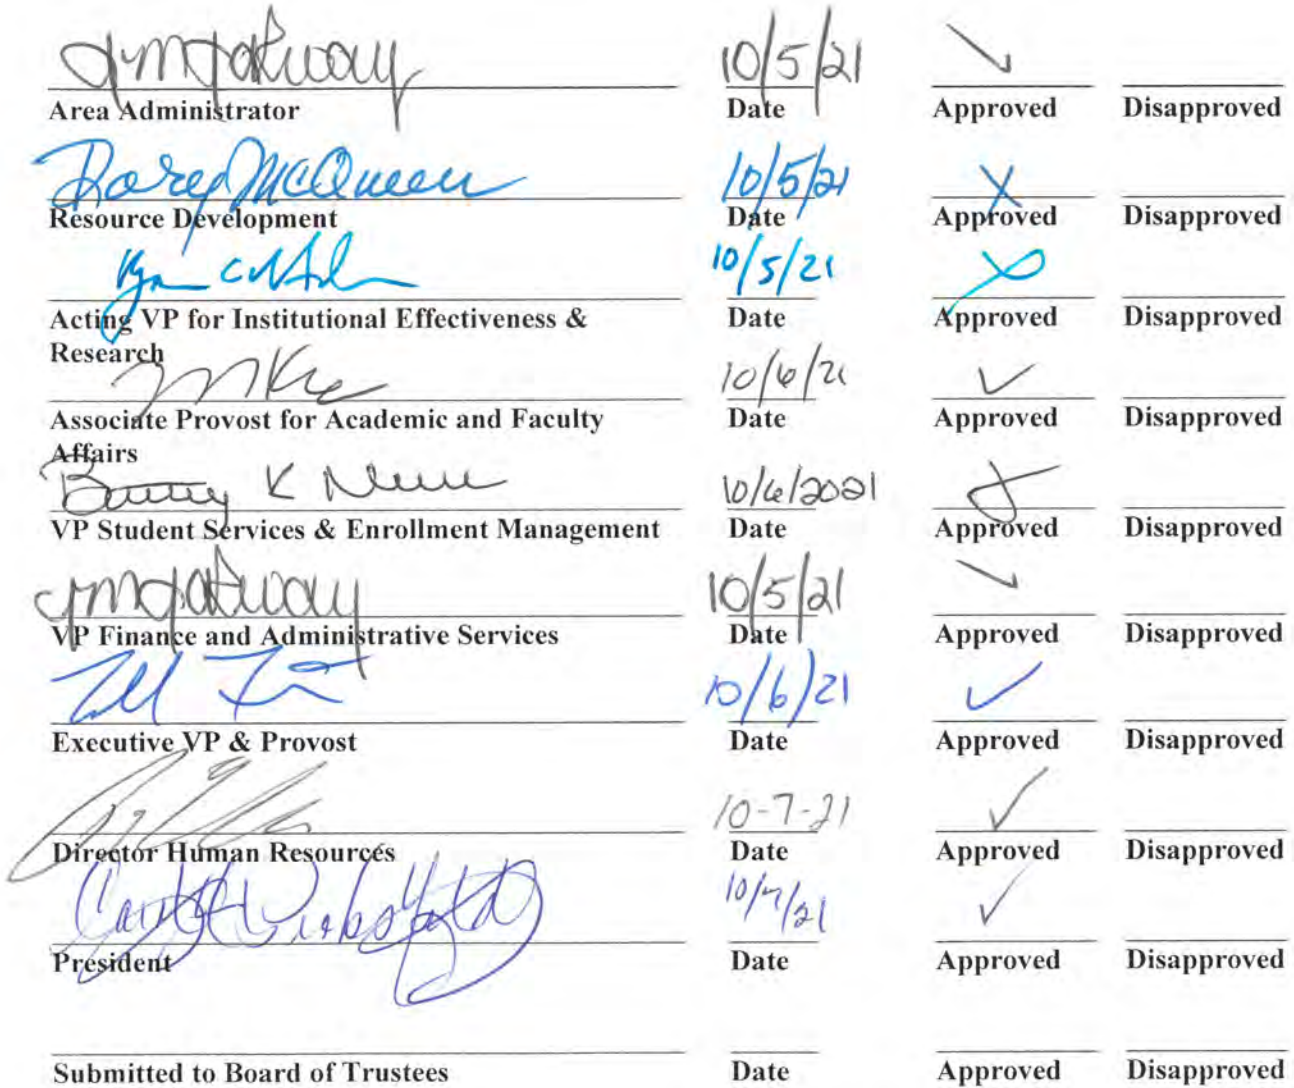 10/5/21
Area Administrator Date Approved Disapproved
McQueen 10/5/21 X
Resource Development Date Approved Disapproved
10/5/21
Acting VP for Institutional Effectiveness & Date Approved Disapproved
Research
10/6/21
Associate Provost for Academic and Faculty Date Approved Disapproved
Affairs
K 10/6/2021
VP Student Services & Enrollment Management Date Approved Disapproved
10/5/21
VP Finance and Administrative Services Date Approved Disapproved
10/6/21
Executive VP & Provost Date Approved Disapproved
10-7-21
Director Human Resources Date Approved Disapproved
10/7/21
President Date Approved Disapproved
Submitted to Board of Trustees Date Approved Disapproved